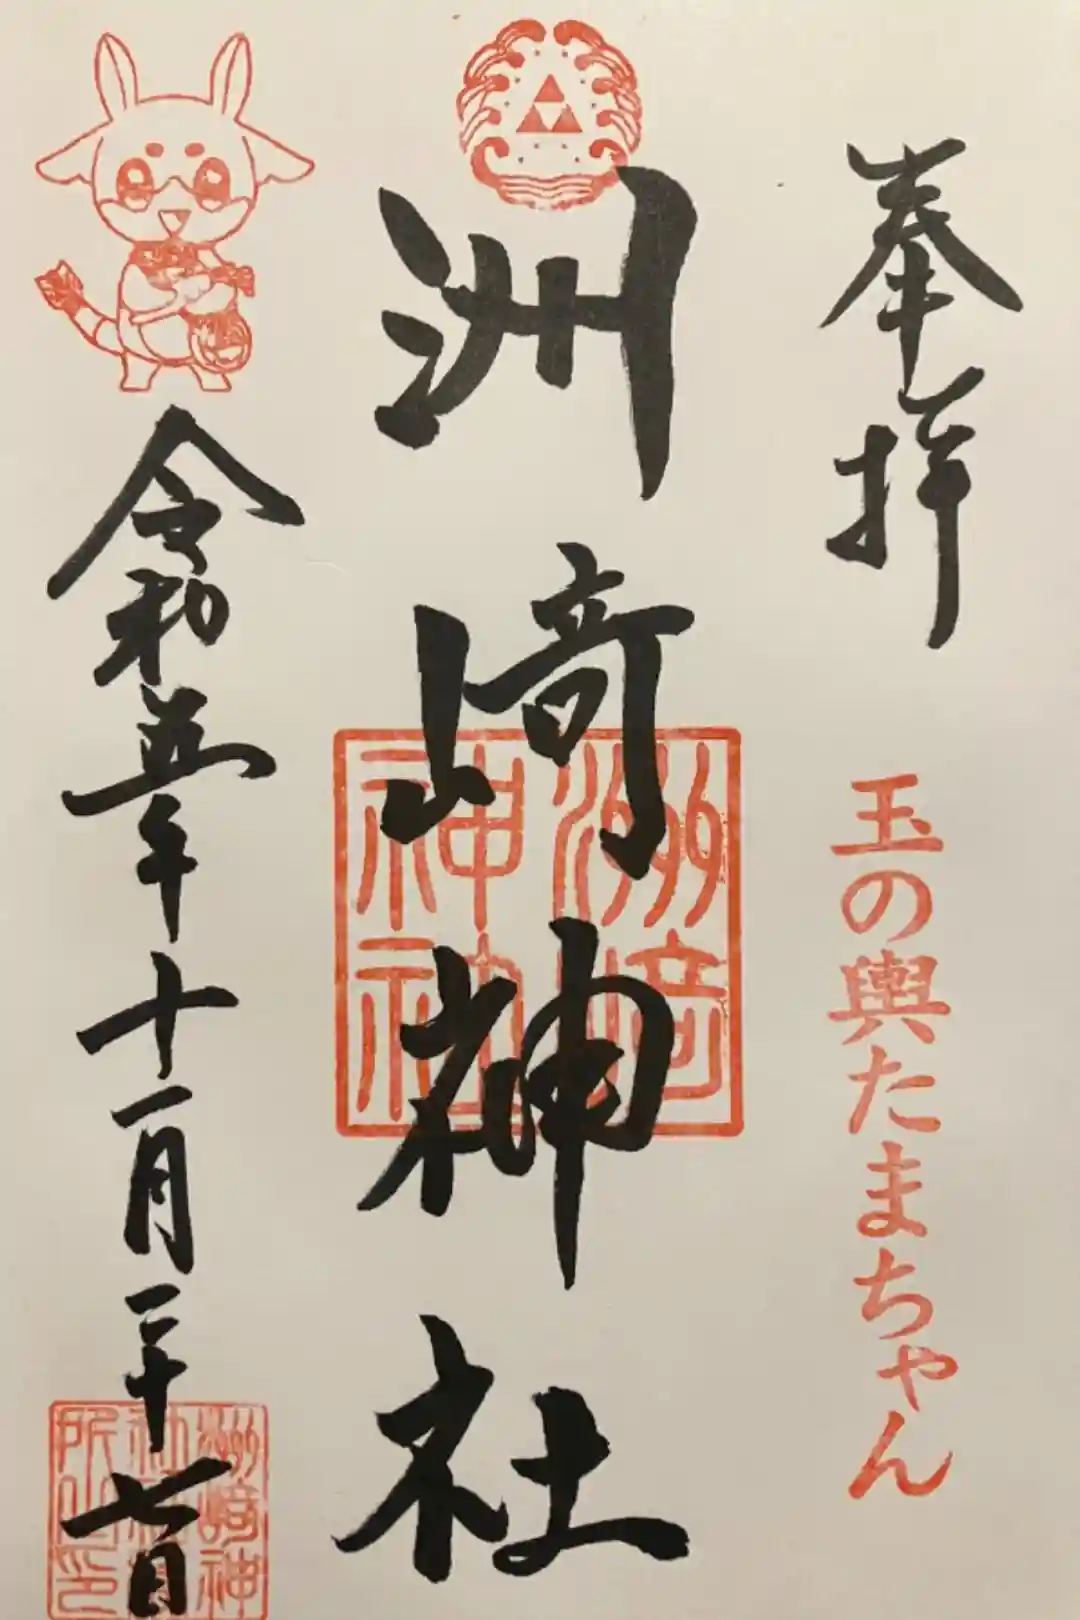 奉拝
玉の輿たまちゃん
洲崎神社
洲崎
神社
令和五年十一月二十七日